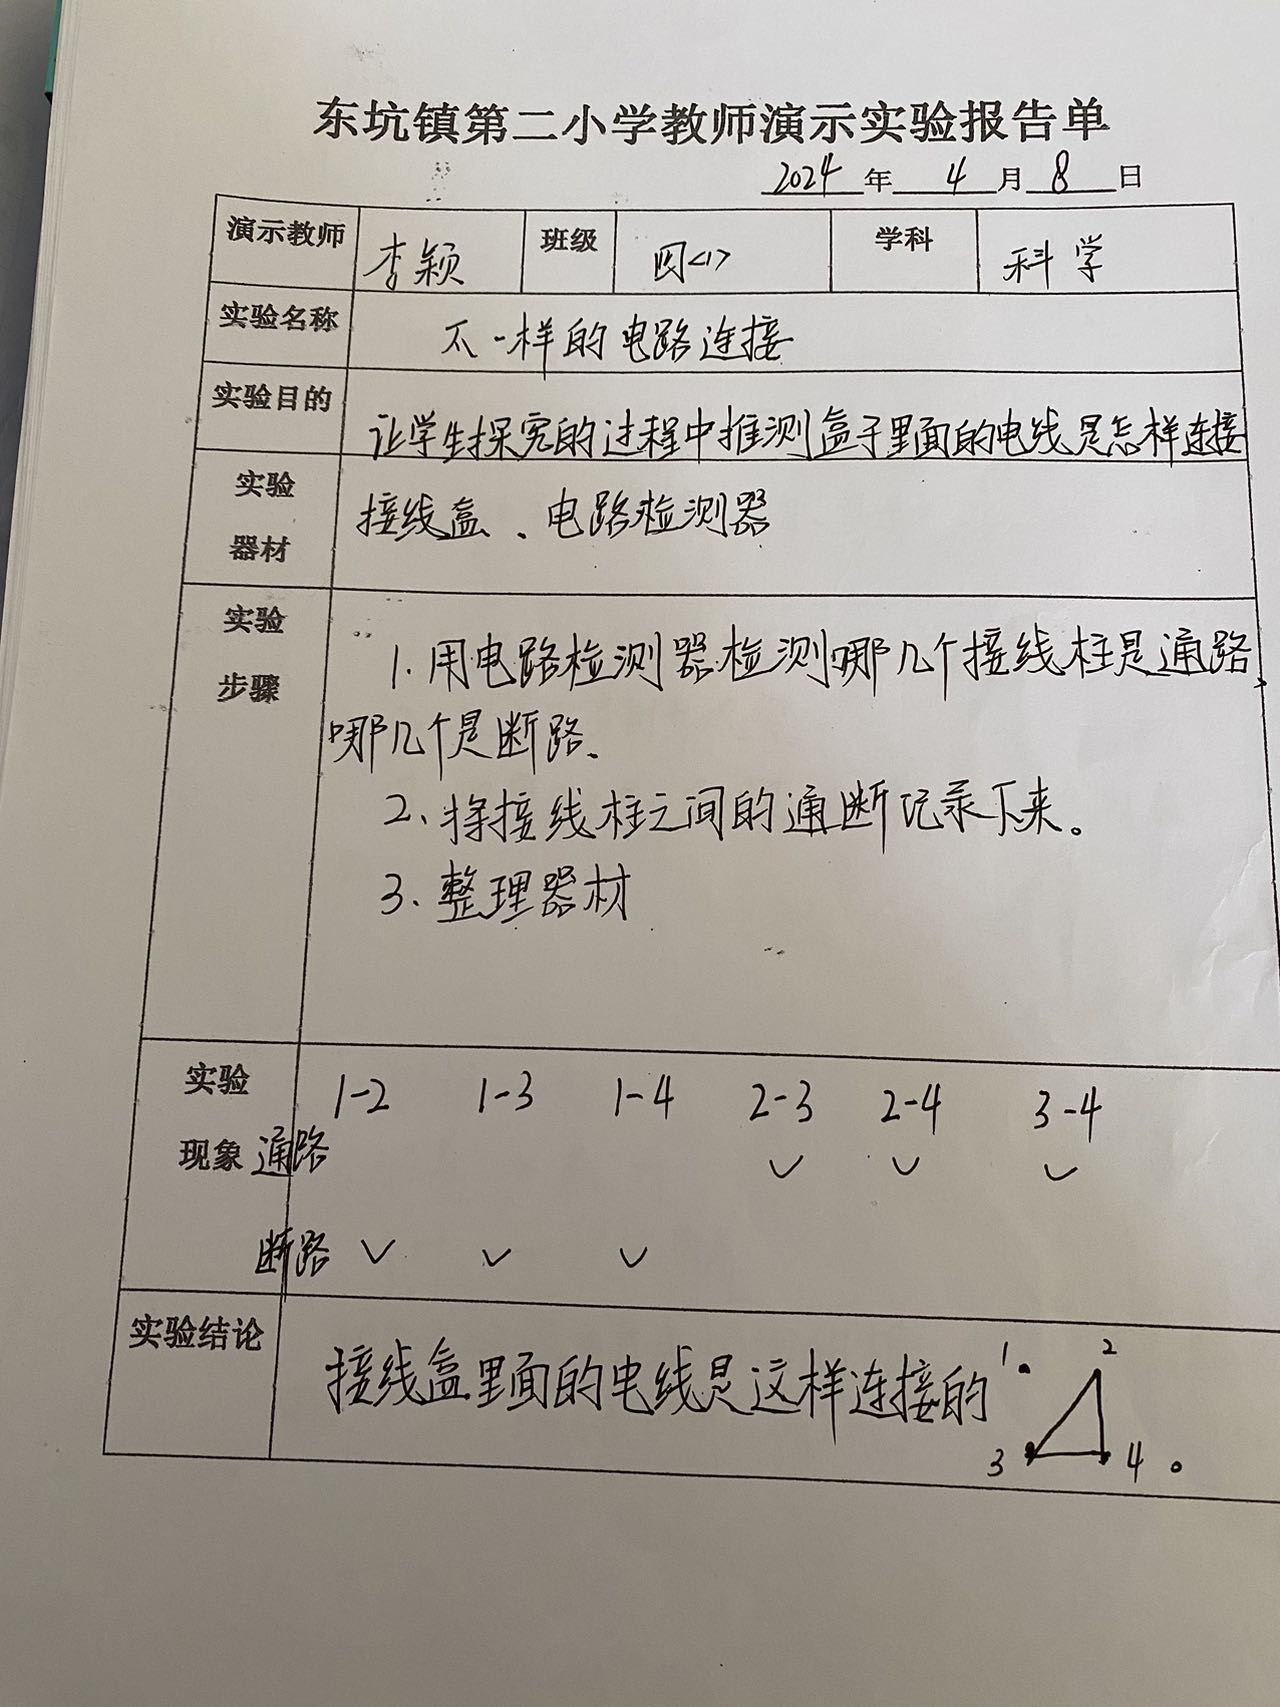 东坑镇第二小学教师演示实验报告单
2024年4月8日
演示教师 李颖 班级 四<1> 学科 科学
实验名称 不一样的电路连接
实验目的 让学生探究的过程中推测盒子里面的电线是怎样连接
实验器材 接线盒、电路检测器
实验步骤
1.用电路检测器检测哪几个接线柱是通路、
哪几个是断路、
2、将接线柱之间的通断记录下来。
3、整理器材
实验现象
1-2 1-3 1-4 2-3 2-4 3-4
通路 ✓ ✓ ✓
断路 ✓ ✓ ✓
实验结论 接线盒里面的电线是这样连接的
1 2
3 4 。